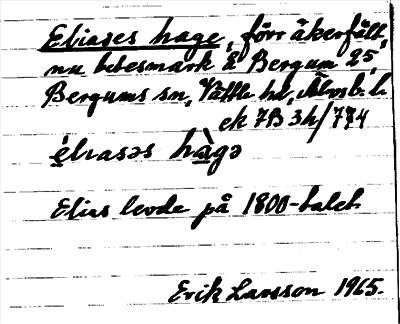 Eliases hage, förr åkerfält,
nu betesmark å Bergum 2⁵,
Bergums sn, Vättle hd, Älvsb. l.
ek 7B 3h/774
é̱lıasəs hà̱gə
Elias levde på 1800-talet
Erik Larsson 1965.